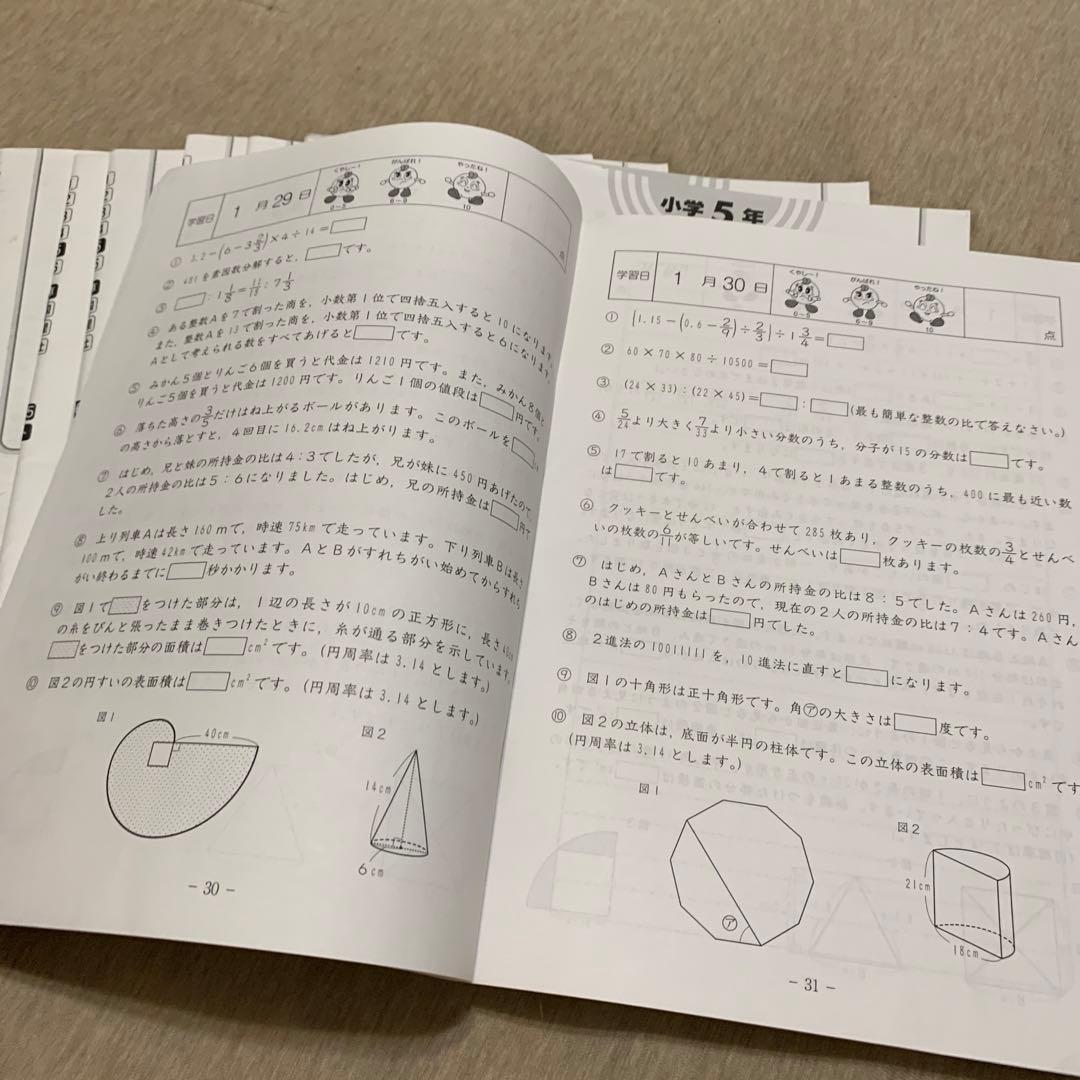 学習日 1月29日
くやしー! がんばれ! やったね!
0～5 6～9 10
点
① 2.2－(6－3 2/3)×4÷14＝□
② 481を素因数分解すると，□です。
③ □：1 1/5＝11/15：7 1/3
④ ある整数Aを7で割った商を，小数第1位で四捨五入すると10になります。
また，整数Aを13で割った商を，小数第1位で四捨五入すると6になります。
Aとして考えられる数をすべてあげると□です。
⑤ みかん5個とりんご6個を買うと代金は1210円です。また，みかん8個と
りんご5個を買うと代金は1200円です。りんご1個の値段は□円です。
⑥ 落ちた高さの3/5だけはね上がるボールがあります。このボールを□
の高さから落とすと，4回目に16.2cmはね上がります。
⑦ はじめ，兄と妹の所持金の比は4：3でしたが，兄が妹に450円あげたので，
2人の所持金の比は5：6になりました。はじめ，兄の所持金は□円で
した。
⑧ 上り列車Aは長さ160mで，時速75kmで走っています。下り列車Bは長さ
100mで，時速42kmで走っています。AとBがすれちがい始めてからすれち
がい終わるまでに□秒かかります。
⑨ 図1で□をつけた部分は，1辺の長さが10cmの正方形に，長さ40cm
の糸をぴんと張ったまま巻きつけたときに，糸が通る部分を示しています。
□をつけた部分の面積は□cm²です。(円周率は3.14とします。)
⑩ 図2の円すいの表面積は□cm²です。(円周率は3.14とします。)
図1
40cm
図2
14cm
6cm
－30－
小学5年
学習日 1月30日
くやしー! がんばれ! やったね!
0～5 6～9 10
点
① {1.15－(0.6－2/9)÷2/3}÷1 3/4＝□
② 60×70×80÷10500＝□
③ (24×33)：(22×45)＝□：□(最も簡単な整数の比で答えなさい。)
④ 5/24より大きく7/33より小さい分数のうち，分子が15の分数は□です。
⑤ 17で割ると10あまり，4で割ると1あまる整数のうち，400に最も近い数
は□です。
⑥ クッキーとせんべいが合わせて285枚あり，クッキーの枚数の3/4とせんべ
いの枚数の6/11が等しいです。せんべいは□枚あります。
⑦ はじめ，AさんとBさんの所持金の比は8：5でした。Aさんは260円，
Bさんは80円もらったので，現在の2人の所持金の比は7：4です。Aさん
のはじめの所持金は□円でした。
⑧ 2進法の10011111を，10進法に直すと□になります。
⑨ 図1の十角形は正十角形です。角㋐の大きさは□度です。
⑩ 図2の立体は，底面が半円の柱体です。この立体の表面積は□cm²です
(円周率は3.14とします。)
図1
㋐
図2
21cm
18cm
－31－